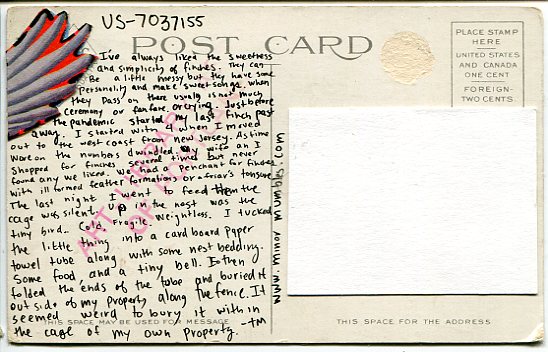 US-7037155
POST CARD
PLACE STAMP
HERE
UNITED STATES
AND CANADA
ONE CENT
FOREIGN-
TWO CENTS.
I've always liked the sweetness
and simplicity of finches. They can
Be a little messy but they have some
Personality and make sweet songs. when
they pass on there usualy is not much
ceremony or fanfare, or crying. Just before
The pandemic started my last finch past
away. I started with 9 when I moved
out to the west coast from new Jersey. As time
wore on the numbers dwindled. My wife an I
shopped for finches several times but never
found any we liked. We had a Penchant for finches
with ill formed feather formations or a friar's tonsure
The last night I went to feed them the
cage was silent. Up in the nest was the
tiny bird.. Cold, Fragile, weightless. I tucked
the little thing into a cardboard paper
towel tube along with some nest bedding.
Some food, and a tiny bell. I then
folded the ends of the tube and buried it
out side of my property along the fence. It
seemed weird to bury it with in
the cage of my own property. -TM
ART LIBRARY
OF
www.minormumbles.com
THIS SPACE MAY BE USED FOR MESSAGE
THIS SPACE FOR THE ADDRESS